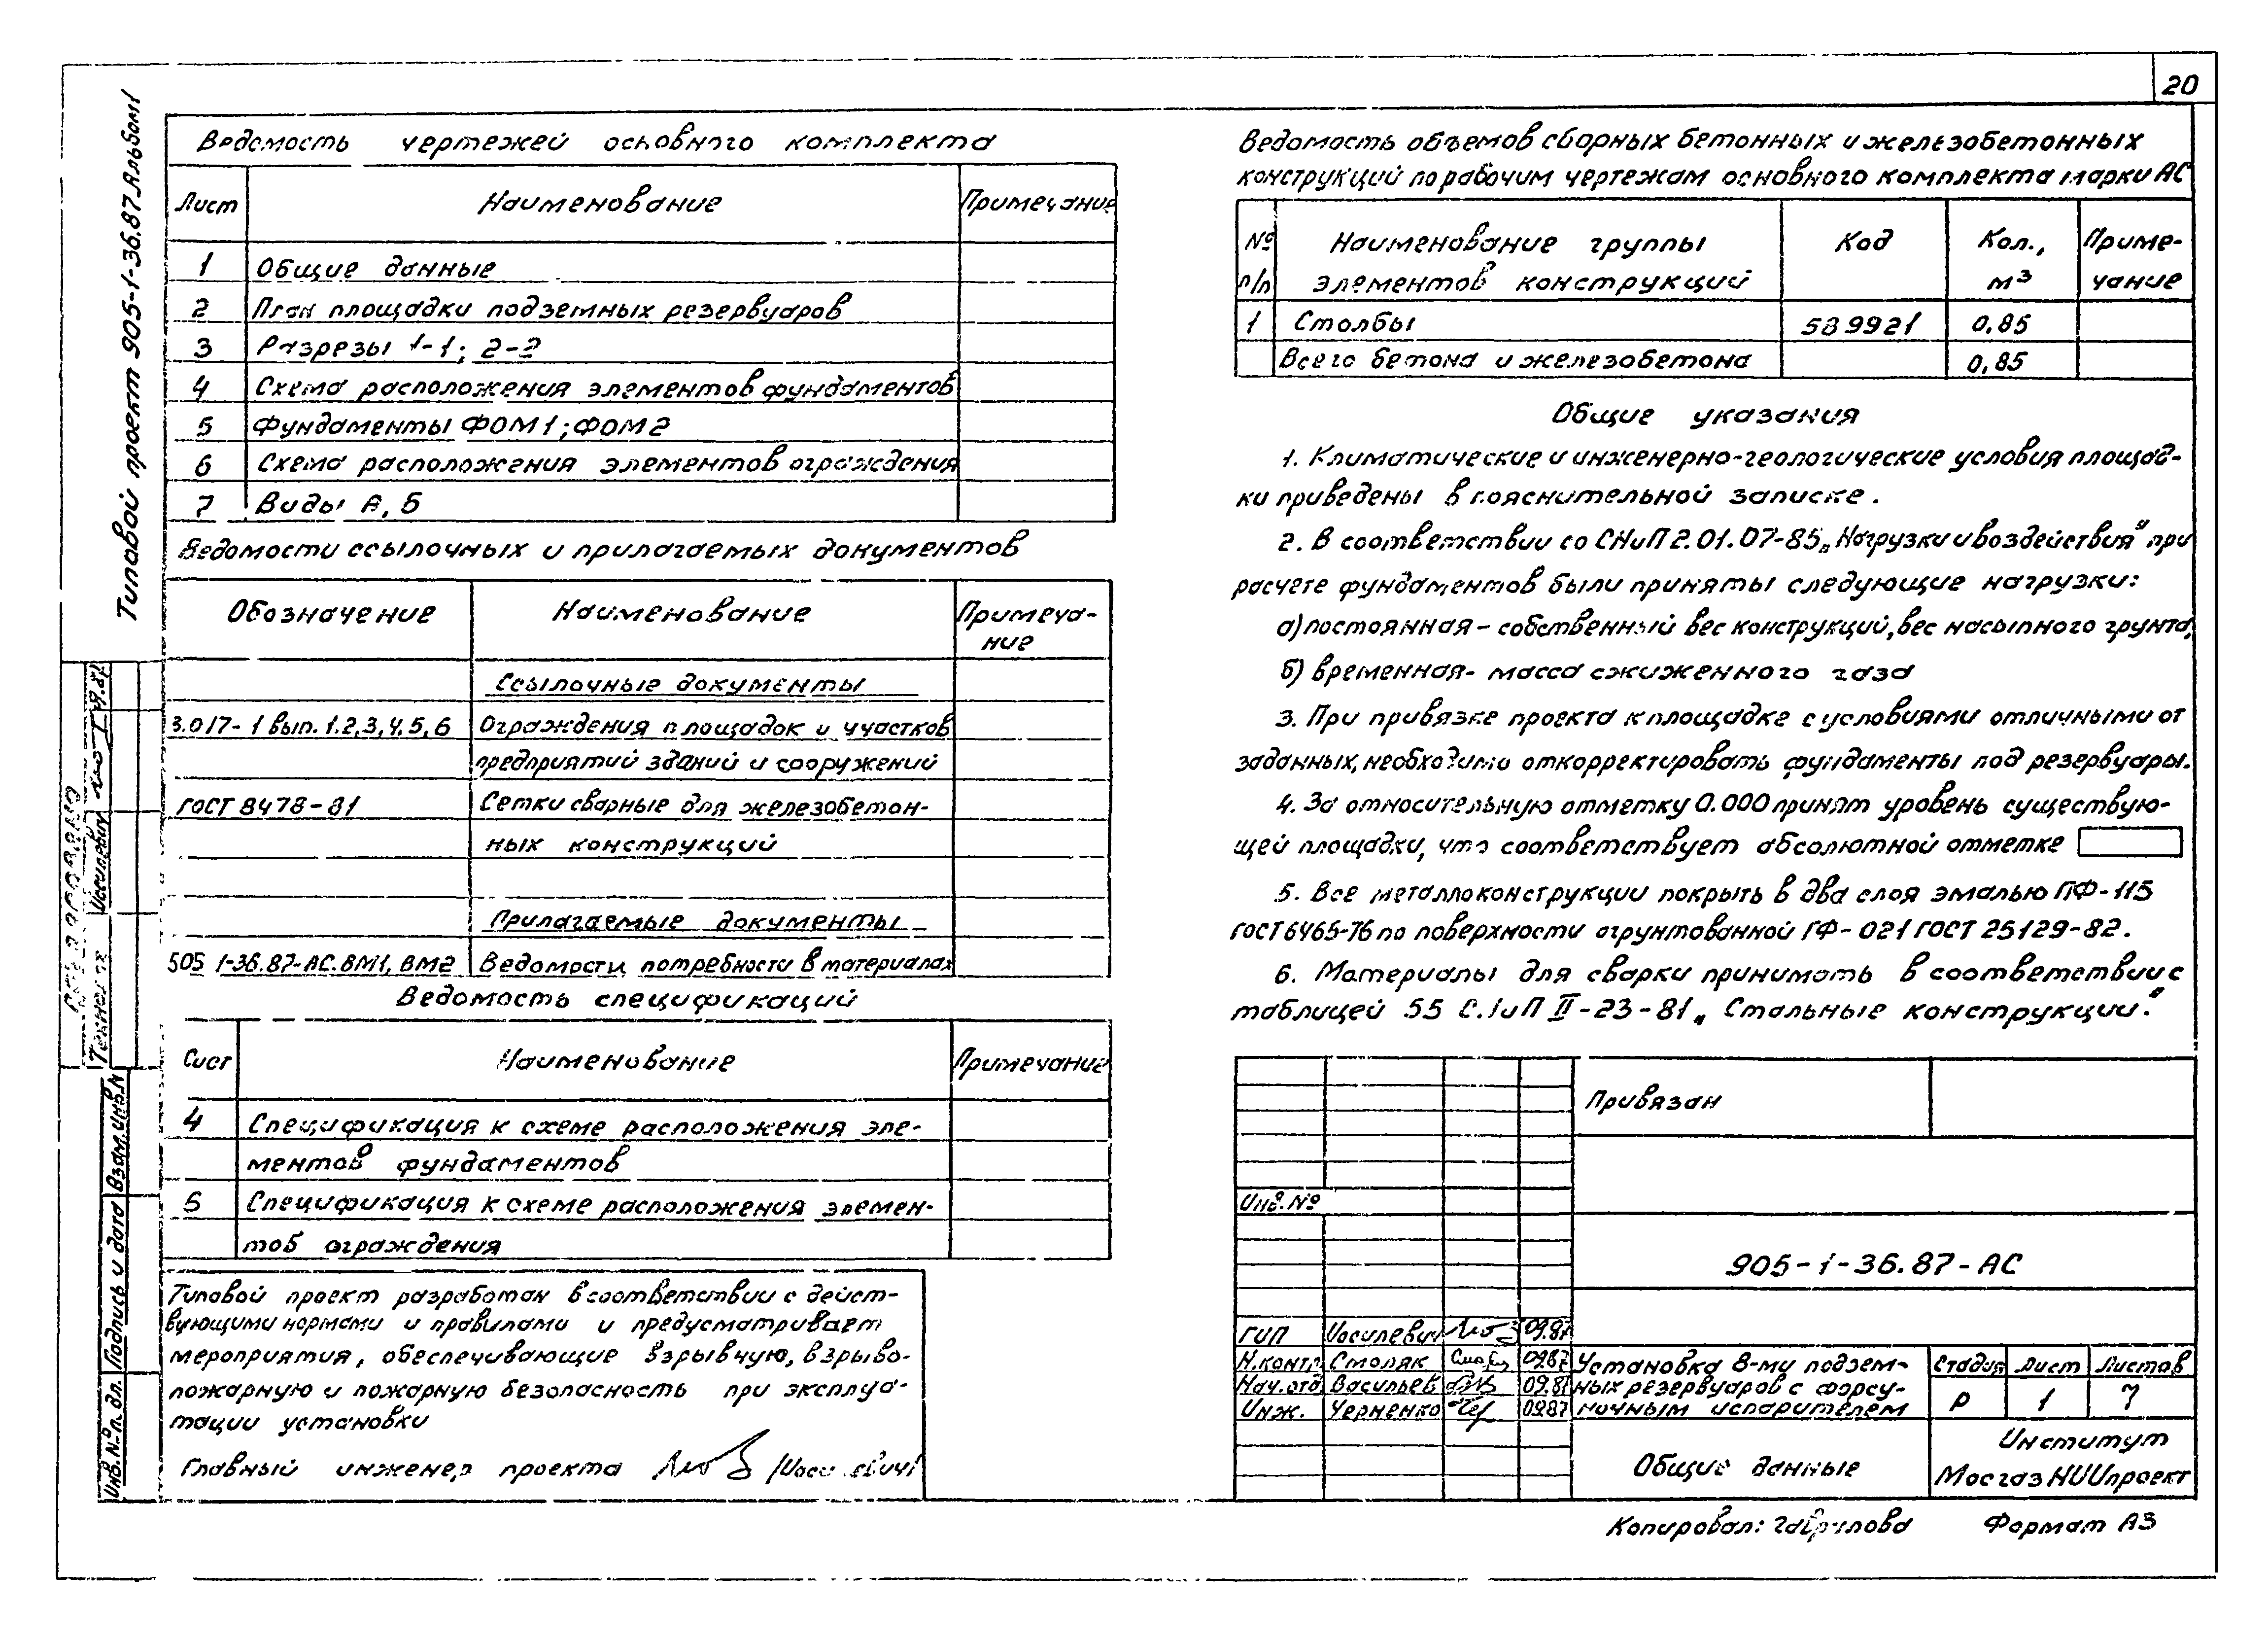 20
Типовой проект 905-1-36.87 Альбом 1
Ведомость чертежей основного комплекта
Лист Наименование Примечание
1 Общие данные
2 План площадки подземных резервуаров
3 Разрезы 1-1; 2-2
4 Схема расположения элементов фундаментов
5 Фундаменты ФОМ1; ФОМ2
6 Схема расположения элементов ограждения
7 Виды А, Б
Ведомости ссылочных и прилагаемых документов
Обозначение Наименование Примеча-
ние
Ссылочные документы
3.017-1 вып. 1.2,3,4,5,6 Ограждения площадок и участков
предприятий зданий и сооружений
ГОСТ 8478-81 Сетки сварные для железобетон-
ных конструкций
Прилагаемые документы
905 1-36.87-АС.ВМ1, ВМ2 Ведомости потребности в материалах
Ведомость спецификаций
Лист Наименование Примечание
4 Спецификация к схеме расположения эле-
ментов фундаментов
5 Спецификация к схеме расположения элемен-
тоб ограждения
Типовой проект разработан в соответствии с дейст-
вующими нормами и правилами и предусматривает
мероприятия, обеспечивающие взрывную, взрыво-
пожарную и пожарную безопасность при эксплуа-
тации установки
Главный инженер проекта /Иосилевич/
Ведомость объемов сборных бетонных и железобетонных
конструкций по рабочим чертежам основного комплекта марки АС
№ Наименование группы Код Кол., Приме-
п/п элементов конструкций м3 чание
1 Столбы 589921 0,85
Всего бетона и железобетона 0,85
Общие указания
1. Климатические и инженерно-геологические условия площад-
ки приведены в пояснительной записке.
2. В соответствии со СНиП 2.01.07-85 „Нагрузки и воздействия" при
расчете фундаментов были приняты следующие нагрузки:
а) постоянная - собственный вес конструкций, вес насыпного грунта,
б) временная - масса сжиженного газа
3. При привязке проекта к площадке с условиями отличными от
заданных, необходимо откорректировать фундаменты под резервуары.
4. За относительную отметку 0.000 принят уровень существую-
щей площадки, что соответствует абсолютной отметке
5. Все металлоконструкции покрыть в два слоя эмалью ПФ-115
ГОСТ 6465-76 по поверхности огрунтованной ГФ-021 ГОСТ 25129-82.
6. Материалы для сварки принимать в соответствии с
таблицей 55 СНиП II-23-81 „Стальные конструкции."
Привязан
Инв. №
905-1-36.87-АС
ГИП Иосилевич 09.87
Н.контр. Столяк 09.87 Установка 8-му подзем- Стадия Лист Листов
Нач.отд Васильев 09.87 ных резервуаров с форсу- Р 1 7
Инж. Черненко 09.87 ночным испарителем
Общие данные Институт
МосгазНИИпроект
Копировал: Гаврилова Формат А3
Технолог Иосилевич
Взам. инв. №
Подпись и дата
Инв. № п. дл.